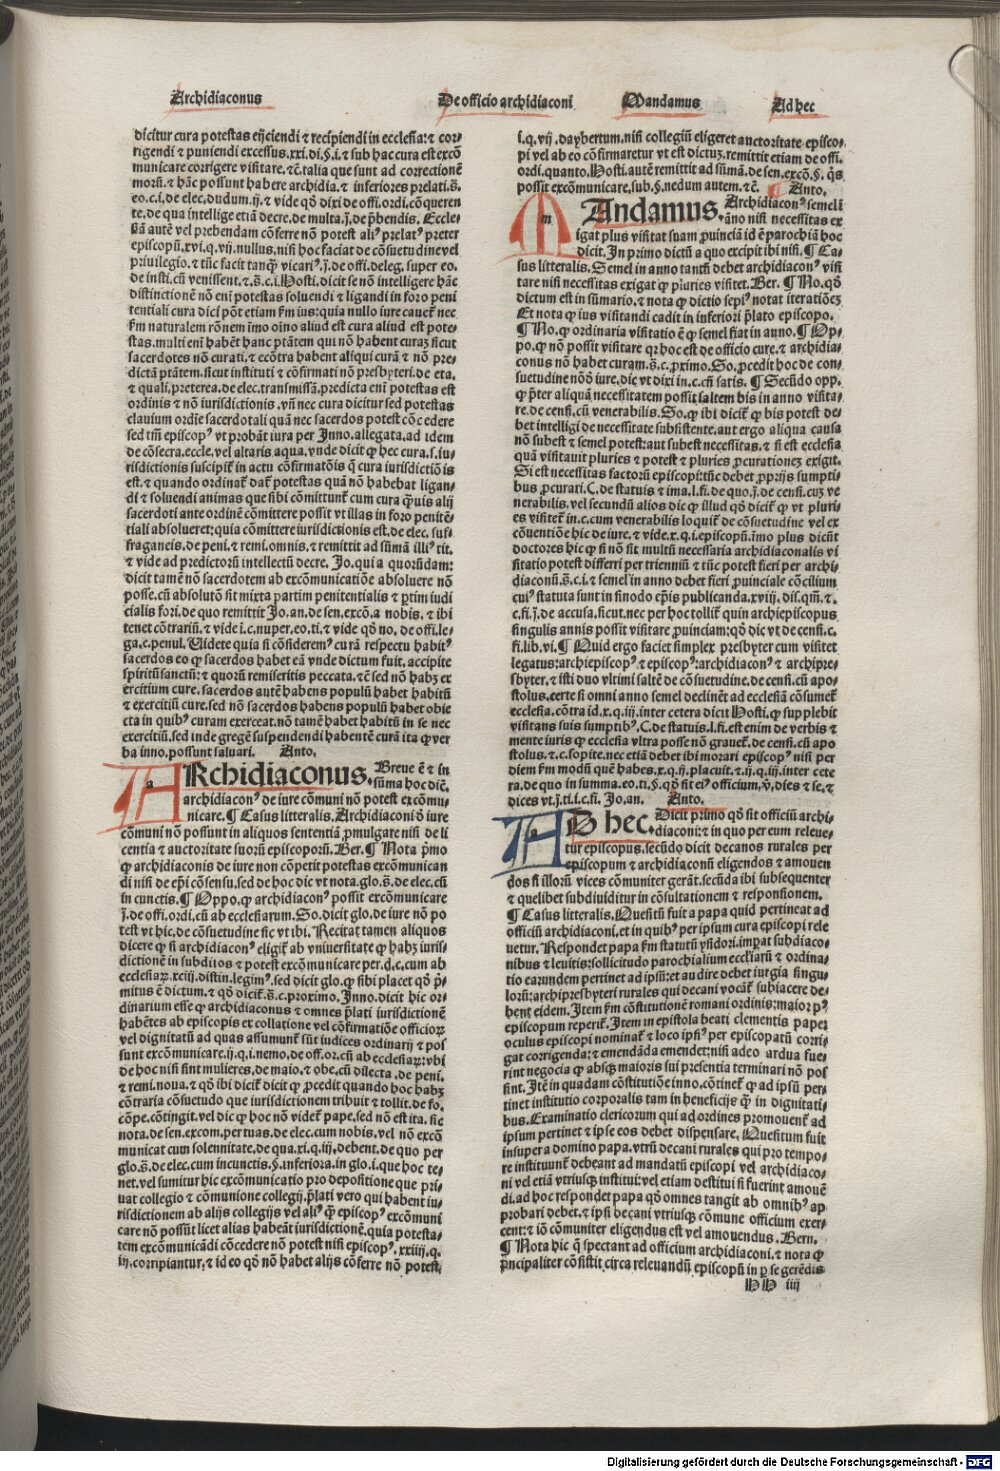 Archidiaconus De officio archidiaconi Mandamus Ad hec
dicitur cura potestas eijciendi ⁊ recipiendi in ecclesia: ⁊ cor⸗
rigendi ⁊ puniendi excessus. xxi. di. §. i. ⁊ sub hac cura est excō
municare corrigere visitare. ⁊ c̄. talia que sunt ad correctionē
morū. ⁊ hāc possunt habere archidia. ⁊ inferiores prelati. s̄.
eo. c. i. de elec. dudum. ij. ⁊ vide qd̄ dixi de offi. ordi. cōqueren
te. de qua intellige etiā decre. de multa. j. de p̄bendis. Eccle⸗
siā autē vel prebendam cōferre nō potest aliꝰ prelatꝰ preter
episcopū. xvi. q. vij. nullus. nisi hoc faciat de cōsuetudine vel
priuilegio. ⁊ tūc facit tanq̄ vicariꝰ. j. de offi. deleg. super eo.
de insti. cū venissent. ⁊. s̄. c. i. Hosti. dicit se nō intelligere hāc
distinctionē nō eni potestas soluendi ⁊ ligandi in foro peni
tentiali cura dici pōt etiam fm ius: quia nullo iure cauet nec
fm naturalem rōnem īmo oīno aliud est cura aliud est pote⸗
stas. multi eni habēt hanc ptātem qui nō habent curaz sicut
sacerdotes nō curati. ⁊ ecōtra habent aliqui curā ⁊ nō pre⸗
dictā ptātem. sicut instituti ⁊ cōfirmati nō presbyteri. de eta.
⁊ quali. preterea. de elec. transmissā. predicta eni potestas est
ordinis ⁊ nō iurisdictionis. vn̄ nec cura dicitur sed potestas
clauium ordīe sacerdotali quā nec sacerdos potest cōcedere
sed tm̄ episcopꝰ vt probāt iura per Inno. allegata. ad idem
de cōsecra. eccle. vel altaris aqua. vnde dicit ꝙ hec cura. s. iu⸗
risdictionis suscipit in actu cōfirmatōis q̄ cura iurisdictiōis
est. ⁊ quando ordinat dat potestas quā nō habebat ligan⸗
di ⁊ soluendi animas que sibi cōmittunt cum cura q̄uis alij
sacerdoti ante ordinē cōmittere possit vt illas in foro penitē⸗
tiali absolueret: quia cōmittere iurisdictionis est. de elec. suf⸗
fraganeis. de peni. ⁊ remi. omnis. ⁊ remittit ad sūmā illiꝰ tit.
⁊ vide ad predictorū intellectū decre. Jo. qui a quorūdam:
dicit tamē nō sacerdotem ab excōmunicatiōe absoluere nō
posse. cū absolutō sit mixta partim penitentialis ⁊ ꝑtim iudi
cialis fori. de quo remittit Jo. an. de sen. excō. a nobis. ⁊ ibi
tenet cōtrariū. ⁊ vide ī. c. nuper. eo. ti. ⁊ vide qd̄ no. de offi. le⸗
ga. c. penul. Videte quia si cōsiderem curā respectu habitꝰ
sacerdos eo ꝙ sacerdos habet eā vnde dictum fuit. accipite
spiritū sanctū: ⁊ quorū remiseritis peccata. ⁊ c̄ sed nō habz ex
ercitium cure. sacerdos autē habens populū habet habitū
⁊ exercitiū cure. sed nō sacerdos habens populū habet obie
cta in quibꝰ curam exerceat. nō tamē habet habitū in se nec
exercitiū. sed inde gregē suspendendi habentē curā ita ꝙ ver
ba inno. possunt saluari. Anto.
ARchidiaconus. Breue ē ⁊ in
sūma hoc diē.
archidiaconꝰ de iure cōmuni nō potest excōmu⸗
nicare. ¶ Casus litteralis. Archidiaconi ō iure
cōmuni nō possunt in aliquos sententiā ꝓmulgare nisi de li
centia ⁊ auctoritate suorū episcoporū. Ber. ¶ Nota p̄mo
ꝙ archidiaconis de iure non cōpetit potestas excōmunican
di nisi de ep̄i cōsensu. sed de hoc dic vt nota. glo. s̄. de elec. cū
in cunctis. ¶ Oppo. ꝙ archidiaconꝰ possit excōmunicare
j̄. de offi. ordi. cū ab ecclesiarum. So. dicit glo. de iure nō po
test vt hic. de cōsuetudine sic vt ibi. Recitat tamen aliquos
dicere ꝙ si archidiaconꝰ eligit ab vniuersitate ꝙ habz iuris⸗
dictionē in subditos ⁊ potest excōmunicare per. d. c. cum ab
ecclesiaꝝ. xciij. distin. legimꝰ. sed dicit glo. ꝙ sibi placet qd̄ p̄⸗
mitus ē dictum. ⁊ qd̄ dicit. s̄. c. proximo. Inno. dicit hic or⸗
dinarium esse ꝙ archidiaconus ⁊ omnes p̄lati iurisdictionē
habētes ab episcopis ex collatione vel cōfirmatiōe officioꝝ
vel dignitatū ad quas assumunt sūt iudices ordinarij ⁊ pos
sunt excōmunicare. ij. q. i. nemo. de off. or. cū ab ecclesiaꝝ: vbi
de hoc nisi sint mulieres. de maio. ⁊ obe. cū dilecta. de peni.
⁊ remi. noua. ⁊ qd̄ ibi dicit dicit ꝙ ꝓcedit quando hoc habz
cōtraria cōsuetudo que iurisdictionem tribuit ⁊ tollit. de fo.
cōpe. cōtingit. vel dic ꝙ hoc nō videt pape. sed nō est ita. sic
nota. de sen. excom. per tuas. de elec. cum nobis. vel nō excō
municat cum solennitate. de qua. xi. q. iij. debent. de quo per
glo. s̄. de elec. cum incunctis. §. inferiora. in glo. i. que hoc te⸗
net. vel sumitur hic excōmunicatio pro depositione que pri⸗
uat collegio ⁊ cōmunione collegij. p̄lati vero qui habent iu⸗
risdictionem ab alijs collegijs vel aliꝰ q̄ episcopꝰ excōmuni
care nō possūt licet alias habeāt iurisdictionē. quia potesta⸗
tem excōmunicādi cōcedere nō potest nisi episcopꝰ. xxiiij. q.
iij. corripiantur. ⁊ id eo qd̄ nō habet alijs cōferre nō potest.
i. q. vij. daybertum. nisi collegiū eligeret auctoritate episco⸗
pi vel ab eo cōfirmaretur vt est dictuz. remittit etiam de offi.
ordi. quanto. Hosti. autē remittit ad sūmā. de sen. excō. §. q̄s
possit excōmunicare. sub. §. nedum autem. ⁊ c̄. Anto.
MAndamus. Archidiaconꝰ semel ī
āno nisi necessitas ex
igat plus visitat suam ꝓuinciā id ē parochiā hoc
dicit. In primo dictū a quo excipit ibi nisi. ¶ Ca⸗
sus litteralis. Semel in anno tantū debet archidiaconꝰ visi
tare nisi necessitas exigat ꝙ pluries visitet. Ber. ¶ No. qd̄
dictum est in sūmario. ⁊ nota ꝙ dictio sepiꝰ notat iterationez
Et nota ꝙ ius visitandi cadit in inferiori p̄lato episcopo.
¶ No. ꝙ ordinaria visitatio ē ꝙ semel fiat in anno. ¶ Op⸗
po. ꝙ nō possit visitare qꝛ hoc est de officio cure. ⁊ archidia⸗
conus nō habet curam. s̄. c. ꝓximo. So. ꝓcedit hoc de con⸗
suetudine nō ō iure. dic vt dixi in. c. cū satis. ¶ Secūdo opp.
ꝙ p̄ter aliquā necessitatem possit saltem bis in anno visita⸗
re. de censi. cū venerabilis. So. ꝙ ibi dicit ꝙ bis potest de⸗
bet intelligi de necessitate subsistente. aut ergo aliqua causa
nō subest ⁊ semel potest: aut subest necessitas. ⁊ si est ecclesia
quā visitauit pluries ⁊ potest ⁊ pluries ꝓcurationez exigit.
Si est necessitas factorū episcopi: tūc debet ꝓprijs sumpti⸗
bus ꝓcurari. C. de statuis ⁊ ima. l. fi. de quo. j̄. de censi. cuz ve
nerabilis. vel secundū alios dic ꝙ illud qd̄ dicit ꝙ vt pluri⸗
es visitet in. c. cum venerabilis loquit de cōsuetudine vel ex
cōuentiōe hic de iure. ⁊ vide. x. q. i. episcopū. īmo plus dicūt
doctores hic ꝙ si nō sit multū necessaria archidiaconalis vi
sitatio potest differri per trienniū ⁊ tūc potest fieri per archi⸗
diaconū. s̄. c. i. ⁊ semel in anno debet fieri ꝓuinciale cōcilium
cuiꝰ statuta sunt in sinodo ep̄is publicanda. xviij. dis. qm̄. ⁊.
c. fi. j̄. de accusa. sicut. nec per hoc tollit quin archiepiscopus
singulis annis possit visitare ꝓuinciam: qd̄ dic vt de censi. c.
fi. lib. vi. ¶ Quid ergo faciet simplex presbyter cum visitet
legatus: archiepiscopꝰ ⁊ episcopꝰ: archidiaconꝰ ⁊ archipre⸗
sbyter. ⁊ isti duo vltimi saltē de cōsuetudine. de censi. cū apo⸗
stolus. certe si omni anno semel declinēt ad ecclesiā cōsumet
ecclesia. cōtra id. x. q. iij. inter cetera dicit Hosti. ꝙ supplebit
visitans suis sumptibꝰ. C. de statuis. l. fi. est enim de verbis ⁊
mente iuris ꝙ ecclesia vltra posse nō grauet. de censi. cū apo
stolus. ⁊. c. sopite. nec etiā debet ibi morari episcopꝰ nisi per
diem fm modū quē habes. x. q. ij. placuit. ⁊. ij. q. iij. inter cete
ra. de quo in summa. eo. ti. §. qd̄ sit eiꝰ officium. v̄. dies ⁊ se. ⁊
dices vt. j̄. ti. i. c. fi. Jo. an. Anto.
AD hec. Dicit primo qd̄ sit officiū archi⸗
diaconi: ⁊ in quo per eum releue⸗
tur episcopus. secūdo dicit decanos rurales per
episcopum ⁊ archidiaconū eligendos ⁊ amouen
dos si illorū vices cōmuniter gerāt. secūda ibi subsequenter
⁊ quelibet subdiuiditur in cōsultationem ⁊ responsionem.
¶ Casus litteralis. Quesitū fuit a papa quid pertineat ad
officiū archidiaconi. et in quibꝰ per ipsum cura episcopi rele
uetur. Respondet papa fm statutū ysidori. imp̄at subdiaco⸗
nibus ⁊ leuitis: sollicitudo parochialium eccliarū ⁊ ordina⸗
tio earundem pertinet ad ipsū: et audire debet iurgia singu
lorū: archipresbyteri rurales qui decani vocāt subiacere de⸗
bent eidem. Item fm cōstitutionē romani ordinis: maior pꝰ
episcopum reperit. Item in epistola beati clementis pape
oculus episcopi nominat ⁊ loco ipsiꝰ per episcopatū corri⸗
gat corrigenda: ⁊ emendāda emendet: nisi adeo ardua fue⸗
rint negocia ꝙ absqz maioris sui presentia terminari nō pos
sint. Itē in quadam cōstitutiōe inno. cōtinet ꝙ ad ipsū per⸗
tinet institutio corporalis tam in beneficijs q̄ in dignitati⸗
bus. Examinatio clericorum qui ad ordines promouent ad
ipsum pertinet ⁊ ipse eos debet dispensare. Quesitum fuit
insupera domino papa. vtrū decani rurales qui pro tempo⸗
re instituunt debeant ad mandatū episcopi vel archidiaco⸗
ni vel etiā vtriusqz institui: vel etiam destitui si fuerint amouē
di. ad hoc respondet papa qd̄ omnes tangit ab omnibꝰ ap
probari debet. ⁊ ipsi decani vtriusqz cōmune officium exer⸗
cent: ⁊ iō cōmuniter eligendus est vel amouendus. Bern.
¶ Nota hic q̄ spectant ad officium archidiaconi. ⁊ nota ꝙ
p̄ncipaliter cōsistit circa releuandū episcopū in ꝑ se gerēdis
HH iiij
Digitalisierung gefördert durch die Deutsche Forschungsgemeinschaft - DFG